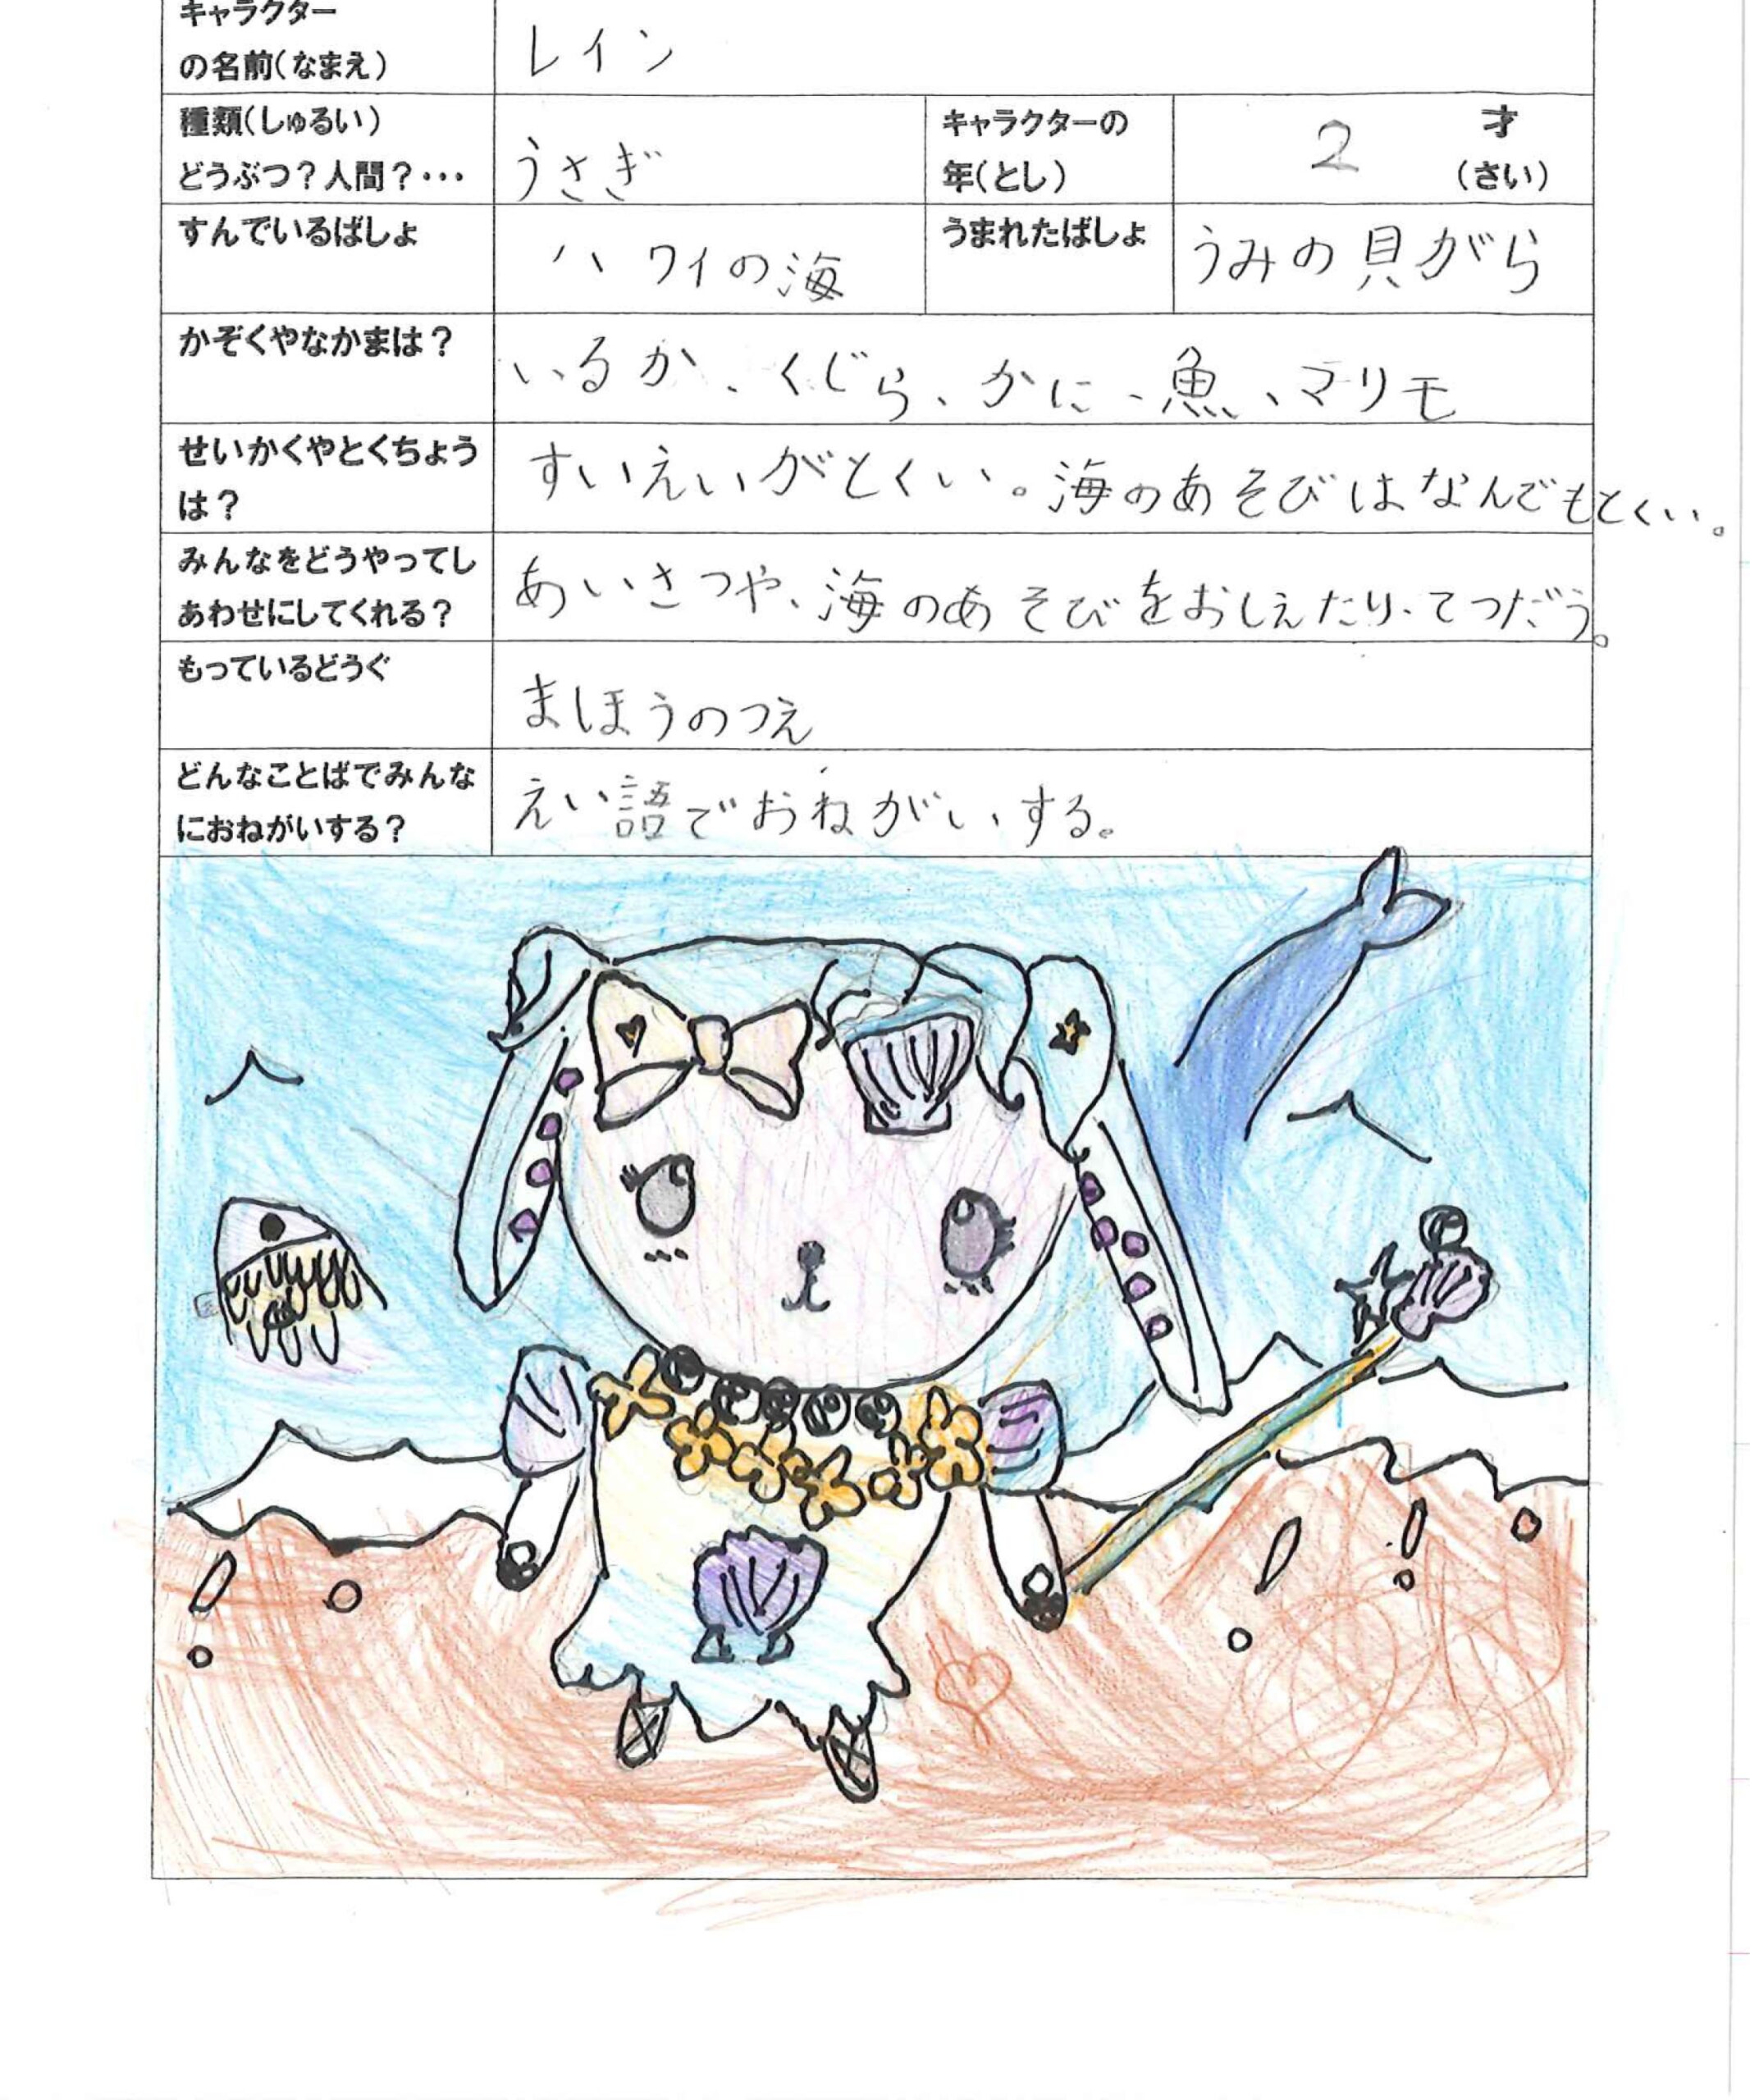 キャラクター
の名前(なまえ)
レイン
種類(しゅるい)
どうぶつ?人間?・・・
うさぎ
キャラクターの
年(とし)
2
才
(さい)
すんでいるばしょ
ハワイの海
うまれたばしょ
うみの貝がら
かぞくやなかまは?
いるか、くじら、かに、魚、マリモ
せいかくやとくちょう
は?
すいえいがとくい。海のあそびはなんでもとくい。
みんなをどうやってし
あわせにしてくれる?
あいさつや、海のあそびをおしえたり、てつだう。
もっているどうぐ
まほうのつえ
どんなことばでみんな
におねがいする?
えい語でおねがいする。